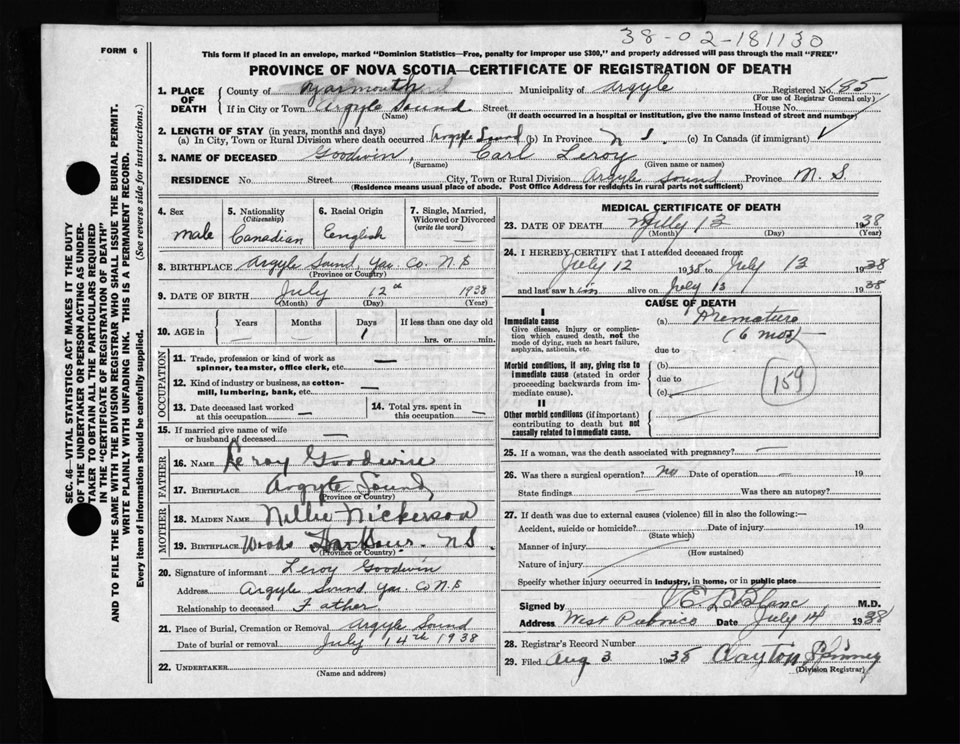 38-02-181130
FORM 6
This form if placed in an envelope, marked "Dominion Statistics—Free, penalty for improper use $300," and properly addressed will pass through the mail "FREE"
PROVINCE OF NOVA SCOTIA—CERTIFICATE OF REGISTRATION OF DEATH
SEC. 46—VITAL STATISTICS ACT MAKES IT THE DUTY
OF THE UNDERTAKER OR PERSON ACTING AS UNDER-
TAKER TO OBTAIN ALL THE PARTICULARS REQUIRED
IN THE "CERTIFICATE OF REGISTRATION OF DEATH"
AND TO FILE THE SAME WITH THE DIVISION REGISTRAR WHO SHALL ISSUE THE BURIAL PERMIT.
WRITE PLAINLY WITH UNFADING INK. THIS IS A PERMANENT RECORD.
Every item of information should be carefully supplied. (See reverse side for instructions.)
1. PLACE OF DEATH County of Yarmouth Municipality of Argyle Registered No. 85
(For use of Registrar General only)
If in City or Town Argyle Sound Street House No.
(Name) (If death occurred in a hospital or institution, give the name instead of street and number)
2. LENGTH OF STAY (in years, months and days)
(a) In City, Town or Rural Division where death occurred Argyle Sound (b) In Province N S. (c) In Canada (if immigrant)
3. NAME OF DECEASED Goodwin, Carl Leroy
(Surname) (Given name or names)
RESIDENCE No. Street City, Town or Rural Division Argyle Sound Province N. S
(Residence means usual place of abode. Post Office Address for residents in rural parts not sufficient)
4. Sex
male
5. Nationality
(Citizenship)
Canadian
6. Racial Origin
English
7. Single, Married,
Widowed or Divorced
(write the word)
—
8. BIRTHPLACE Argyle Sound, Yar. Co. N.S
(Province or Country)
9. DATE OF BIRTH July 12th 1938
(Month) (Day) (Year)
10. AGE in
Years Months Days If less than one day old
1 hrs. or min.
OCCUPATION
11. Trade, profession or kind of work as
spinner, teamster, office clerk, etc. —
12. Kind of industry or business, as cotton-
mill, lumbering, bank, etc. —
13. Date deceased last worked
at this occupation —
14. Total yrs. spent in
this occupation —
15. If married give name of wife
or husband of deceased —
FATHER
16. NAME Leroy Goodwin
17. BIRTHPLACE Argyle Sound
(Province or Country)
MOTHER
18. MAIDEN NAME Nellie Nickerson
19. BIRTHPLACE Woods Harbour. N.S.
(Province or Country)
20. Signature of informant Leroy Goodwin
Address Argyle Sound Yar. Co N.S
Relationship to deceased Father
21. Place of Burial, Cremation or Removal Argyle Sound
Date of burial or removal July 14th 1938
22. UNDERTAKER
(Name and address)
MEDICAL CERTIFICATE OF DEATH
23. DATE OF DEATH July 13 1938
(Month) (Day) (Year)
24. I HEREBY CERTIFY that I attended deceased from
July 12 1938 to July 13 1938
and last saw him alive on July 13 1938
CAUSE OF DEATH
I
Immediate cause
Give disease, injury or complica-
tion which caused death, not the
mode of dying, such as heart failure,
asphyxia, asthenia, etc.
(a) Premature
(6 mos)
due to
Morbid conditions, if any, giving rise to
immediate cause (stated in order
proceeding backwards from im-
mediate cause).
(b)
due to
(c)
159
II
Other morbid conditions (if important)
contributing to death but not
causally related to immediate cause.
25. If a woman, was the death associated with pregnancy? —
26. Was there a surgical operation? no Date of operation — 19
State findings — Was there an autopsy?
27. If death was due to external causes (violence) fill in also the following:—
Accident, suicide or homicide? Date of injury 19
(State which)
Manner of injury
(How sustained)
Nature of injury
Specify whether injury occurred in industry, in home, or in public place
Signed by J E LeBlanc M.D.
Address West Pubnico Date July 14 1938
28. Registrar's Record Number
29. Filed Aug 3 1938 Clayton
(Division Registrar)